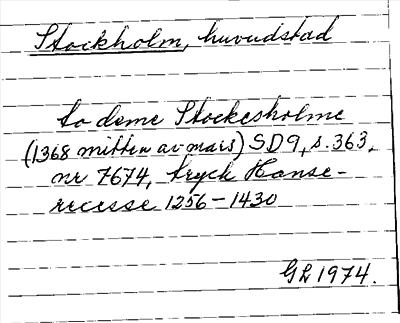 Stockholm, huvudstad
to deme Stockesholme
(1368 mitten av mars) SD9, s. 363,
nr 7674, tryck Hanse-
recesse 1256-1430
GL 1974.